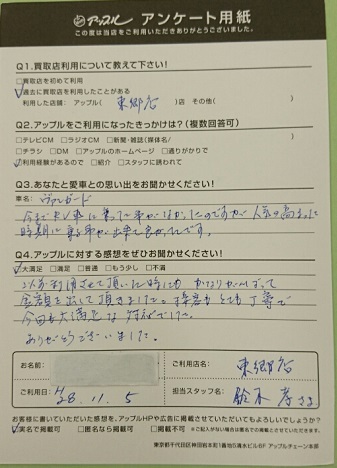 アップル アンケート用紙
この度は当店をご利用いただきありがとうございました。
Q1.買取店利用について教えて下さい!
□買取店を初めて利用
☑過去に買取店を利用したことがある
利用した店舗: アップル( 東郷店 )店 その他( )
Q2.アップルをご利用になったきっかけは?(複数回答可)
□テレビCM □ラジオCM □新聞・雑誌(媒体名/ )
□チラシ □DM □アップルのホームページ □通りがかりで
☑利用経験があるので □紹介 □スタッフに誘われて
Q3.あなたと愛車との思い出をお聞かせください!
車名: ヴァンガード
今までRV車に乗った事がなかったのですが 人気の高まった
時期に乗る事が出来て良かったです。
Q4.アップルに対する感想をぜひお聞かせください!
☑大満足 □満足 □普通 □もう少し □不満
利用させて頂いた時にも かなりがんばって
金額を出して頂きました。接客もとても丁寧で
今回も大満足な対応でした。
ありがとうございました。
お名前:
ご利用店名: 東郷店
ご利用日: H28.11.5
担当スタッフ名: 鈴木 孝さま
お客様に書いていただいた感想を、アップルHPや広告に掲載させていただいてもよろしいでしょうか?
☑実名で掲載可 □匿名なら掲載可 □掲載不可 ※ご記入がない場合は匿名での掲載とさせていただきます。
東京都千代田区神田岩本町1番地5清水ビル6F アップルチェーン本部